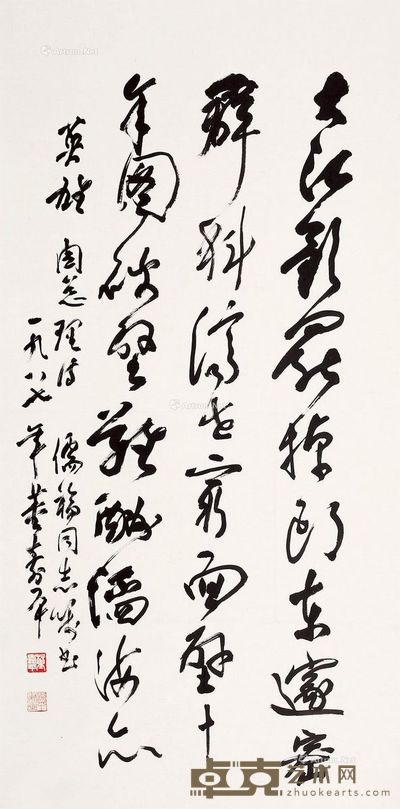 大江歌罢掉头东邃密
群科济世穷面壁十
年图破壁难酬蹈海亦
英雄 周总理诗 儒福同志嘱书
一九八七年 董寿平
Artron.Net
卓克艺术网
zhuokearts.com